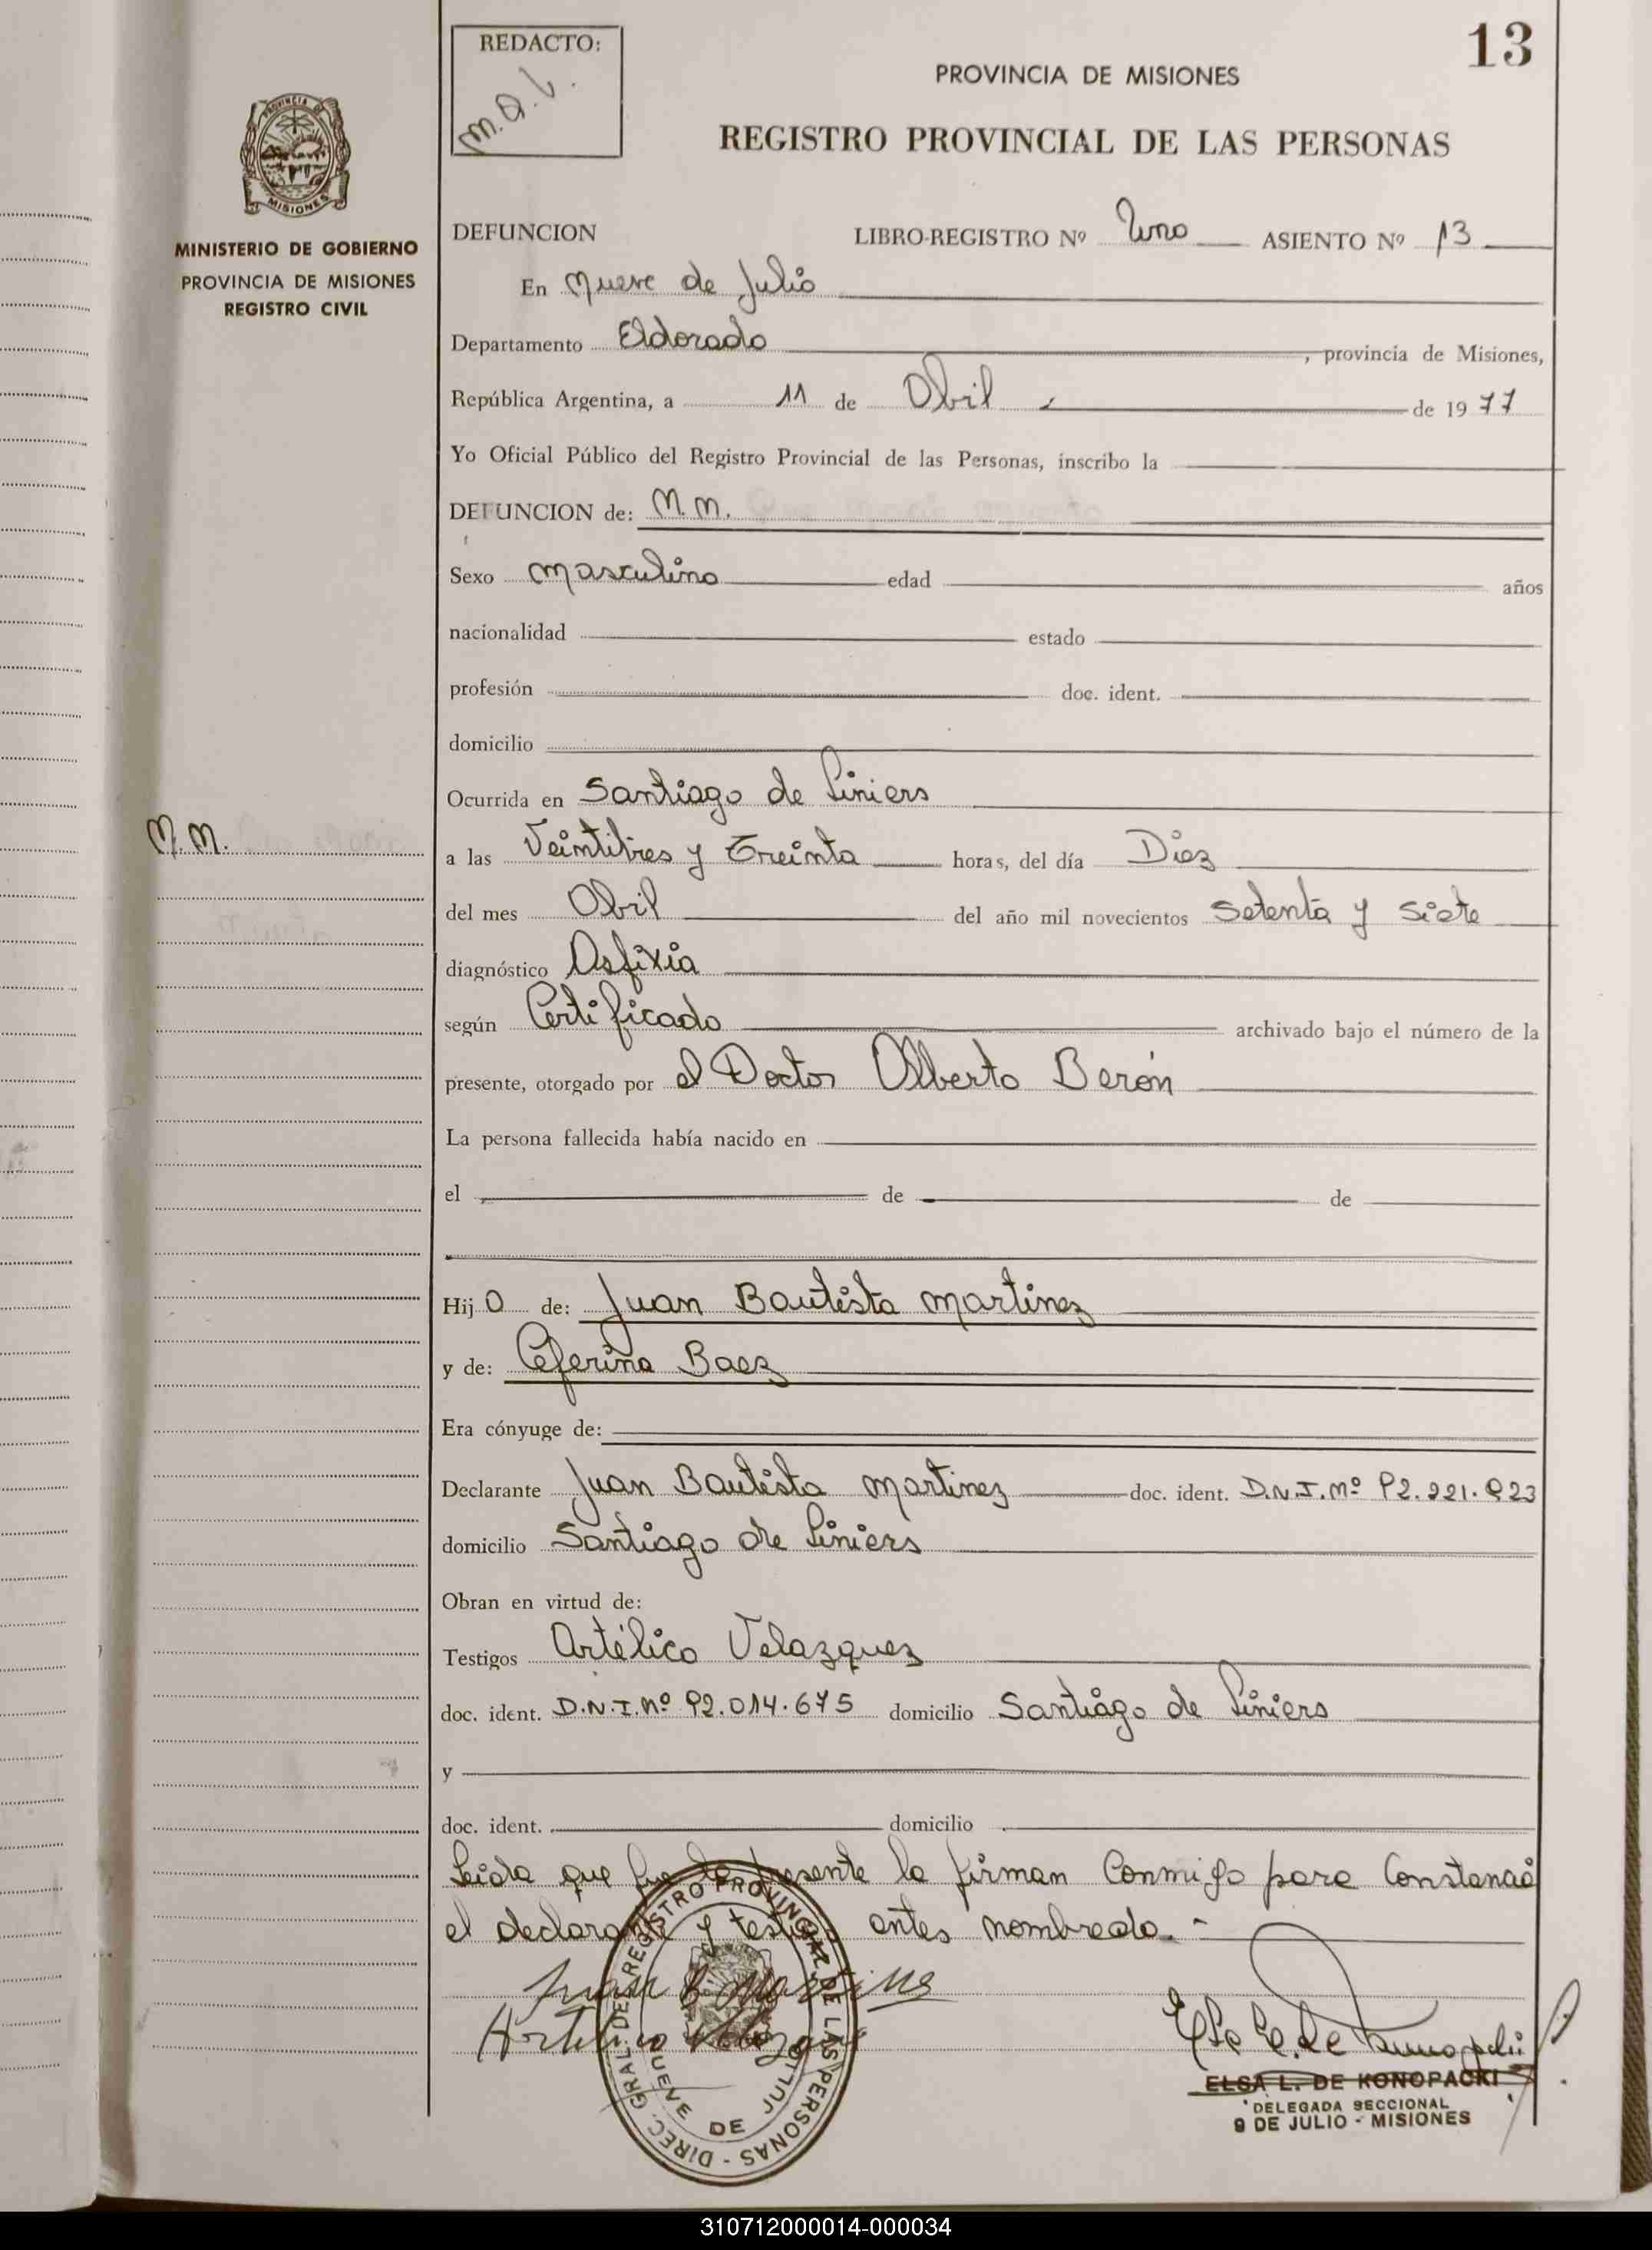 13
REDACTO:
M.A.L.
PROVINCIA DE MISIONES
REGISTRO PROVINCIAL DE LAS PERSONAS
PROVINCIA DE
MISIONES
MINISTERIO DE GOBIERNO
PROVINCIA DE MISIONES
REGISTRO CIVIL
DEFUNCION LIBRO-REGISTRO Nº Uno ASIENTO Nº 13
En Nueve de Julio
Departamento Eldorado, provincia de Misiones,
República Argentina, a 11 de Abril de 1977
Yo Oficial Público del Registro Provincial de las Personas, inscribo la
DEFUNCION de: N.N.
Sexo masculino edad años
nacionalidad estado
profesión doc. ident.
domicilio
Ocurrida en Santiago de Liniers
N.N.
a las Veintitres y Treinta horas, del día Diez
del mes Abril del año mil novecientos Setenta y Siete
diagnóstico Asfixia
según Certificado archivado bajo el número de la
presente, otorgado por el Doctor Alberto Berón
La persona fallecida había nacido en
el de de
Hijo de: Juan Bautista Martinez
y de: Ceferina Baez
Era cónyuge de:
Declarante Juan Bautista Martinez doc. ident. D.N.I.Nº 92.221.923
domicilio Santiago de Liniers
Obran en virtud de:
Testigos Artélico Velazquez
doc. ident. D.N.I.Nº 92.014.675 domicilio Santiago de Liniers
y
doc. ident. domicilio
Leida que fue la presente la firman Conmigo para Constancia
el declarante y testigo antes nombrado.-
Juan B Martines
DIREC. GRAL. DE REGISTRO PROVINCIAL DE LAS PERSONAS -
NUEVE DE JULIO
ELSA L. DE KONOPACKI
DELEGADA SECCIONAL
9 DE JULIO - MISIONES
310712000014-000034